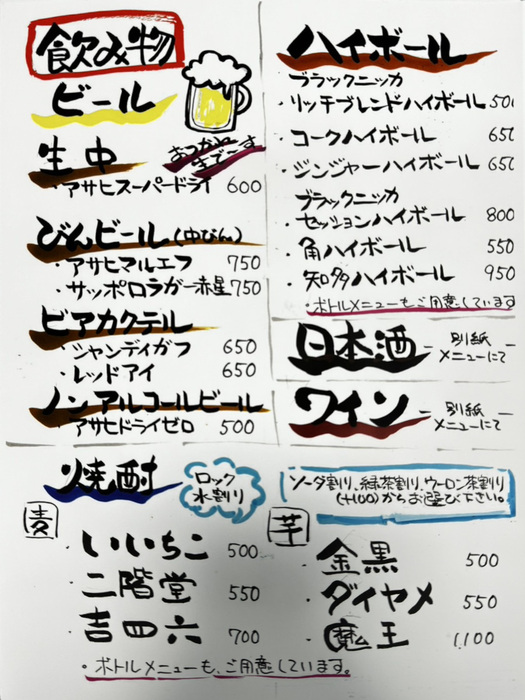 飲み物
ビール
おつかれ
さまで〜す
生中
・アサヒスーパードライ 600
びんビール(中びん)
・アサヒマルエフ 750
・サッポロラガー赤星 750
ビアカクテル
・シャンディガフ 650
・レッドアイ 650
ノンアルコールビール
・アサヒドライゼロ 500
ハイボール
ブラックニッカ
・リッチブレンドハイボール 500
・コークハイボール 650
・ジンジャーハイボール 650
ブラックニッカ
・セッションハイボール 800
・角ハイボール 550
・知多ハイボール 950
・ボトルメニューもご用意しています
日本酒 ― 別紙
メニューにて ―
ワイン ― 別紙
メニューにて ―
焼酎
ロック
水割り
ソーダ割り、緑茶割り、ウーロン茶割り
(+100)からお選び下さい。
麦
・いいちこ 500
・二階堂 550
・吉四六 700
・ボトルメニューも、ご用意しています。
芋
・金黒 500
・ダイヤメ 550
・魔王 1,100